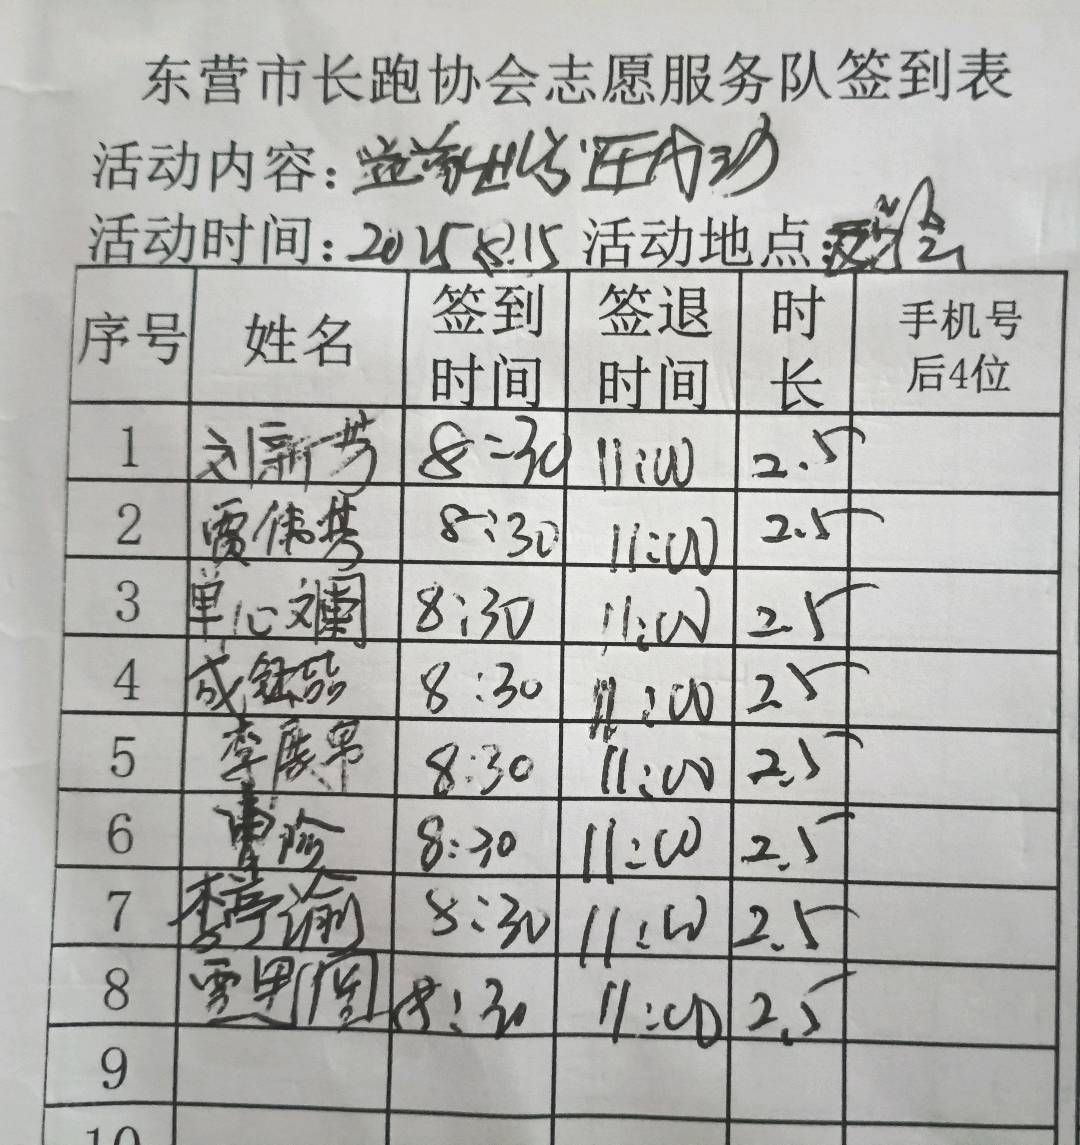 东营市长跑协会志愿服务队签到表
活动内容:
活动时间:2025.8.15 活动地点:
序号 姓名 签到时间 签退时间 时长 手机号后4位
1 刘新芳 8:30 11:00 2.5
2 贾伟芳 8:30 11:00 2.5
3 单心斓 8:30 11:00 2.5
4 成钰喆 8:30 11:00 2.5
5 李展男 8:30 11:00 2.5
6 曹 8:30 11:00 2.5
7 李亭渝 8:30 11:00 2.5
8 贾 8:30 11:00 2.5
9
10